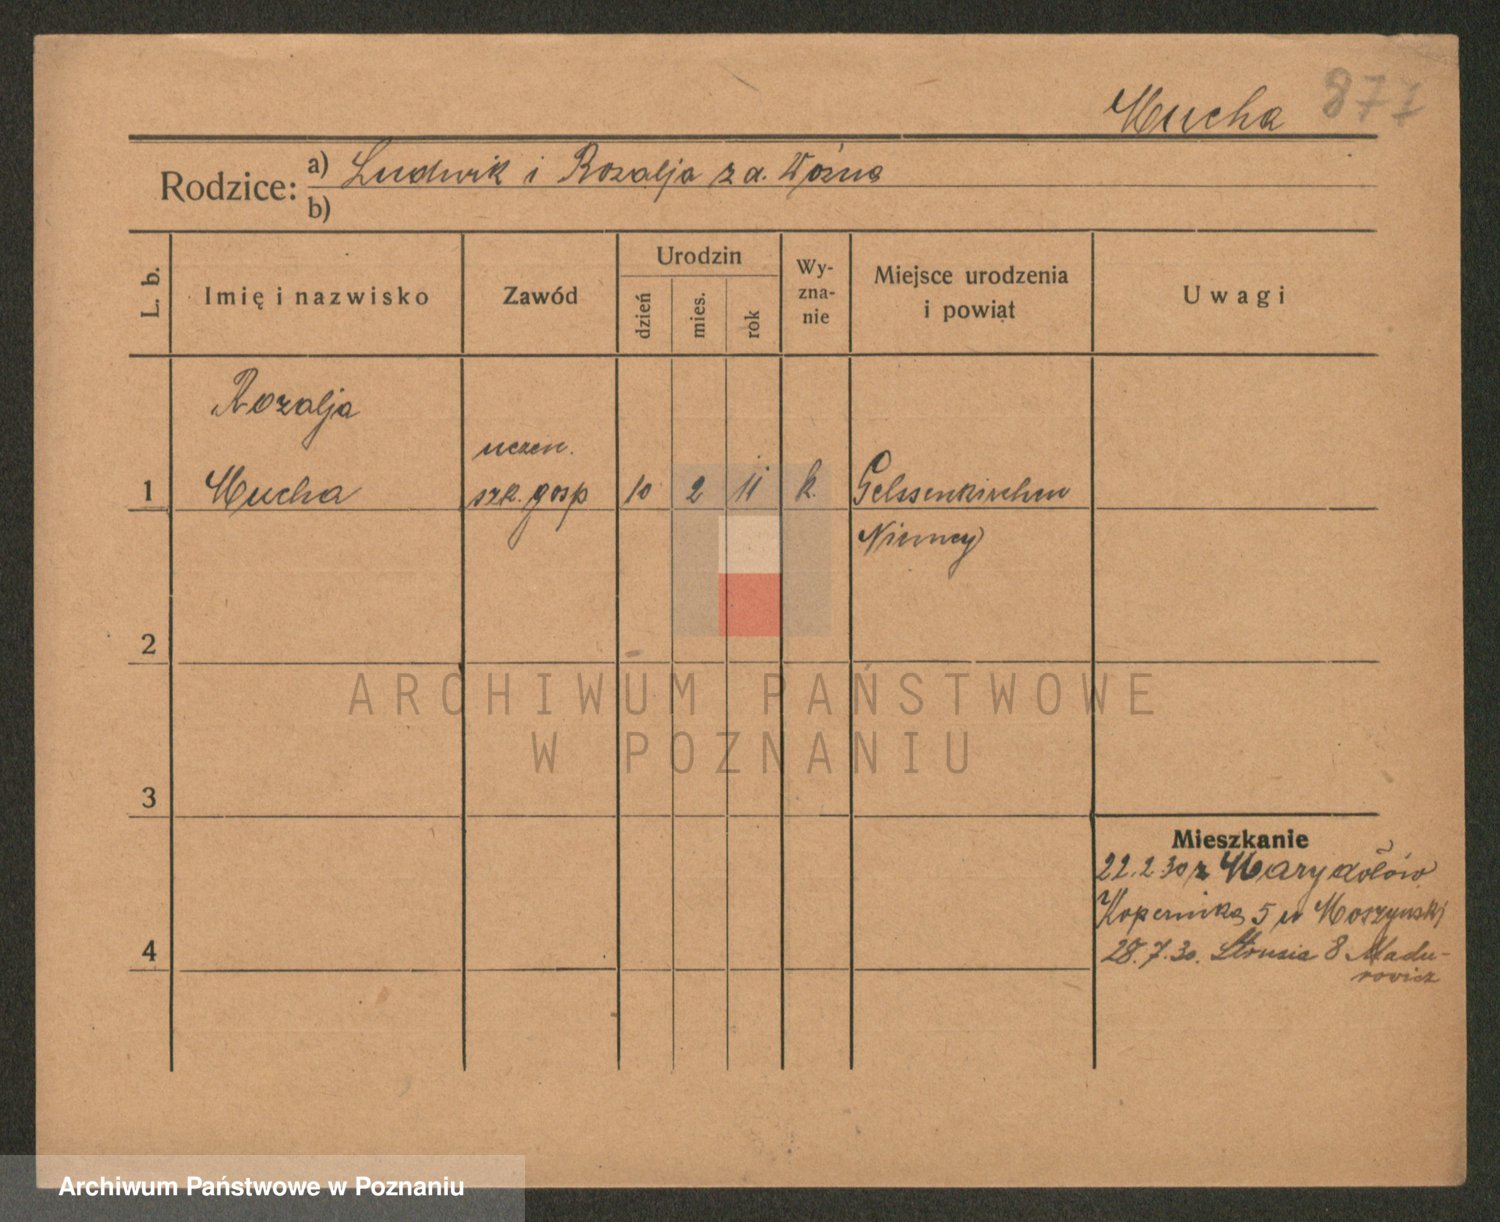 Mucha 877
Rodzice: a) Ludwik i Rozalja z d. Woźna
b)
L. b.
Imię i nazwisko
Zawód
Urodzin
dzień
mies.
rok
Wy-
zna-
nie
Miejsce urodzenia
i powiat
Uwagi
Rozalja
uczen.
1 Mucha szk. gosp 10 2 11 k. Gelssenkirchen
Niemcy
2
ARCHIWUM PAŃSTWOWE
W POZNANIU
3
Mieszkanie
22.2 30 z Marydołów
Kopernika 5 u Moszynski
4
28.7.30. Strusia 8 Madu-
rowicz
Archiwum Państwowe w Poznaniu